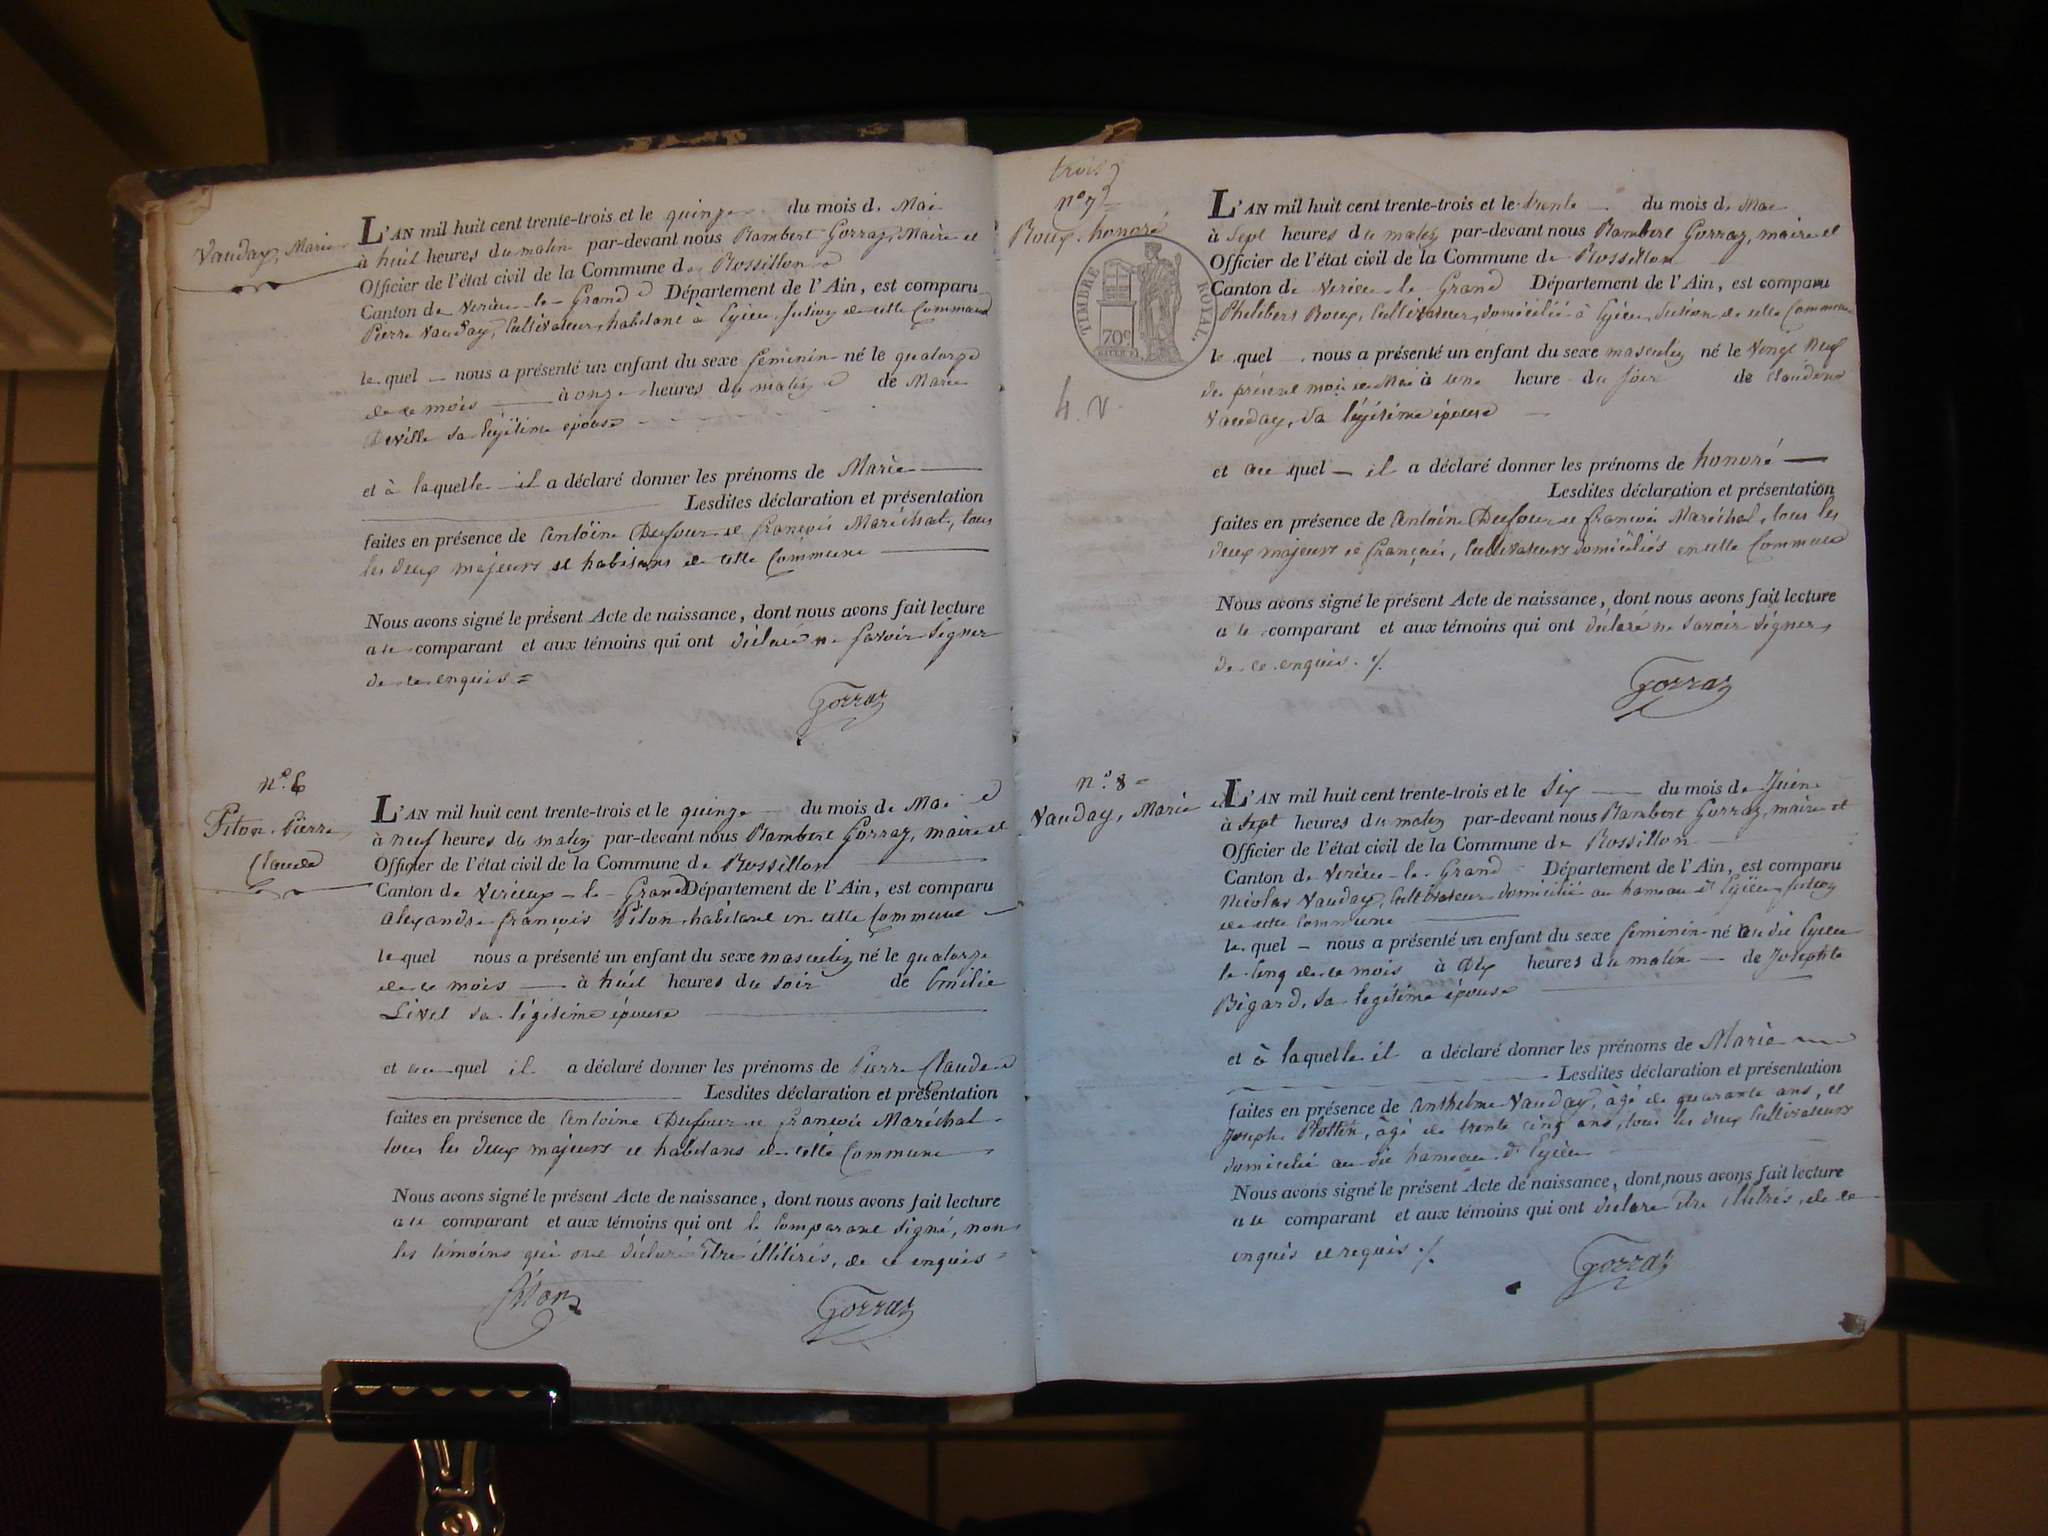 Vauday, Marie
L'AN mil huit cent trente-trois et le quinze du mois de Mai
à huit heures du matin par-devant nous Rambert Gorraz, Maire et
Officier de l'état civil de la Commune de Rossillon
Canton de Virieu-le-Grand Département de l'Ain, est comparu
Pierre Vauday, Cultivateur, habitant à Eyieu, section de cette Commune
le quel nous a présenté un enfant du sexe feminin né le quatorze
de ce mois à onze heures du matin de Marie
Deville sa légitime épouse
et à laquelle il a déclaré donner les prénoms de Marie
Lesdites déclaration et présentation
faites en présence de Antoine Dufour et françois Maréchal, tous
les deux majeurs et habitans de cette Commune
Nous avons signé le présent Acte de naissance, dont nous avons fait lecture
au comparant et aux témoins qui ont déclaré ne savoir signer
de ce enquis =
Gorraz
n.° 6
Piton, Pierre
Claude
L'AN mil huit cent trente-trois et le quinze du mois de Mai
à neuf heures du matin par-devant nous Rambert Gorraz, maire et
Officier de l'état civil de la Commune de Rossillon
Canton de Virieux-le-Grand Département de l'Ain, est comparu
Alexandre françois Piton habitant en cette Commune
le quel nous a présenté un enfant du sexe masculin né le quatorze
de ce mois à huit heures du soir de Emilie
Livet sa légitime épouse
et au quel il a déclaré donner les prénoms de Pierre Claude
Lesdites déclaration et présentation
faites en présence de Antoine Dufour et françois Maréchal
tous les deux majeurs et habitans de cette Commune
Nous avons signé le présent Acte de naissance, dont nous avons fait lecture
au comparant et aux témoins qui ont le Comparant signé, non
les témoins qui ont déclaré être illitirés, de ce enquis =
Piton
Gorraz
trois
n° 7
Roux, honoré
TIMBRE ROYAL
70c
4. V.
L'AN mil huit cent trente-trois et le trente du mois de Mai
à Sept heures du matin par-devant nous Rambert Gorraz, maire et
Officier de l'état civil de la Commune de Rossillon
Canton de Virieu-le-Grand Département de l'Ain, est comparu
Philibert Roux, Cultivateur, domicilié à Eyieu, section de cette Commune
le quel nous a présenté un enfant du sexe masculin né le Vingt neuf
du présent mois de Mai à une heure du soir de Claudine
Vauday, sa légitime épouse
et au quel il a déclaré donner les prénoms de honoré
Lesdites déclaration et présentation
faites en présence de Antoine Dufour et françois Maréchal, tous les
deux majeurs et français, Cultivateurs domiciliés en cette Commune
Nous avons signé le présent Acte de naissance, dont nous avons fait lecture
au comparant et aux témoins qui ont déclaré ne savoir signer,
de ce enquis ./.
Gorraz
n.° 8 =
Vauday, Marie
L'AN mil huit cent trente-trois et le Six du mois de Juin
à Sept heures du matin par-devant nous Rambert Gorraz, maire et
Officier de l'état civil de la Commune de Rossillon
Canton de Virieu-le-Grand Département de l'Ain, est comparu
Nicolas Vauday, Cultivateur domicilié au hameau d'Eyieu, section
de cette Commune
le quel nous a présenté un enfant du sexe feminin né audit Eyieu
le Cinq de ce mois à Dix heures du matin de Josephte
Bigard, sa légitime épouse
et à laquelle il a déclaré donner les prénoms de Marie
Lesdites déclaration et présentation
faites en présence de Anthelme Vauday, âgé de quarante ans, et
Joseph Rottin, âgé de trente cinq ans, tous les deux Cultivateurs
domicilié au dit hameau d'Eyieu
Nous avons signé le présent Acte de naissance, dont nous avons fait lecture
au comparant et aux témoins qui ont déclaré être illitrés, de ce
enquis et requis ./.
Gorraz